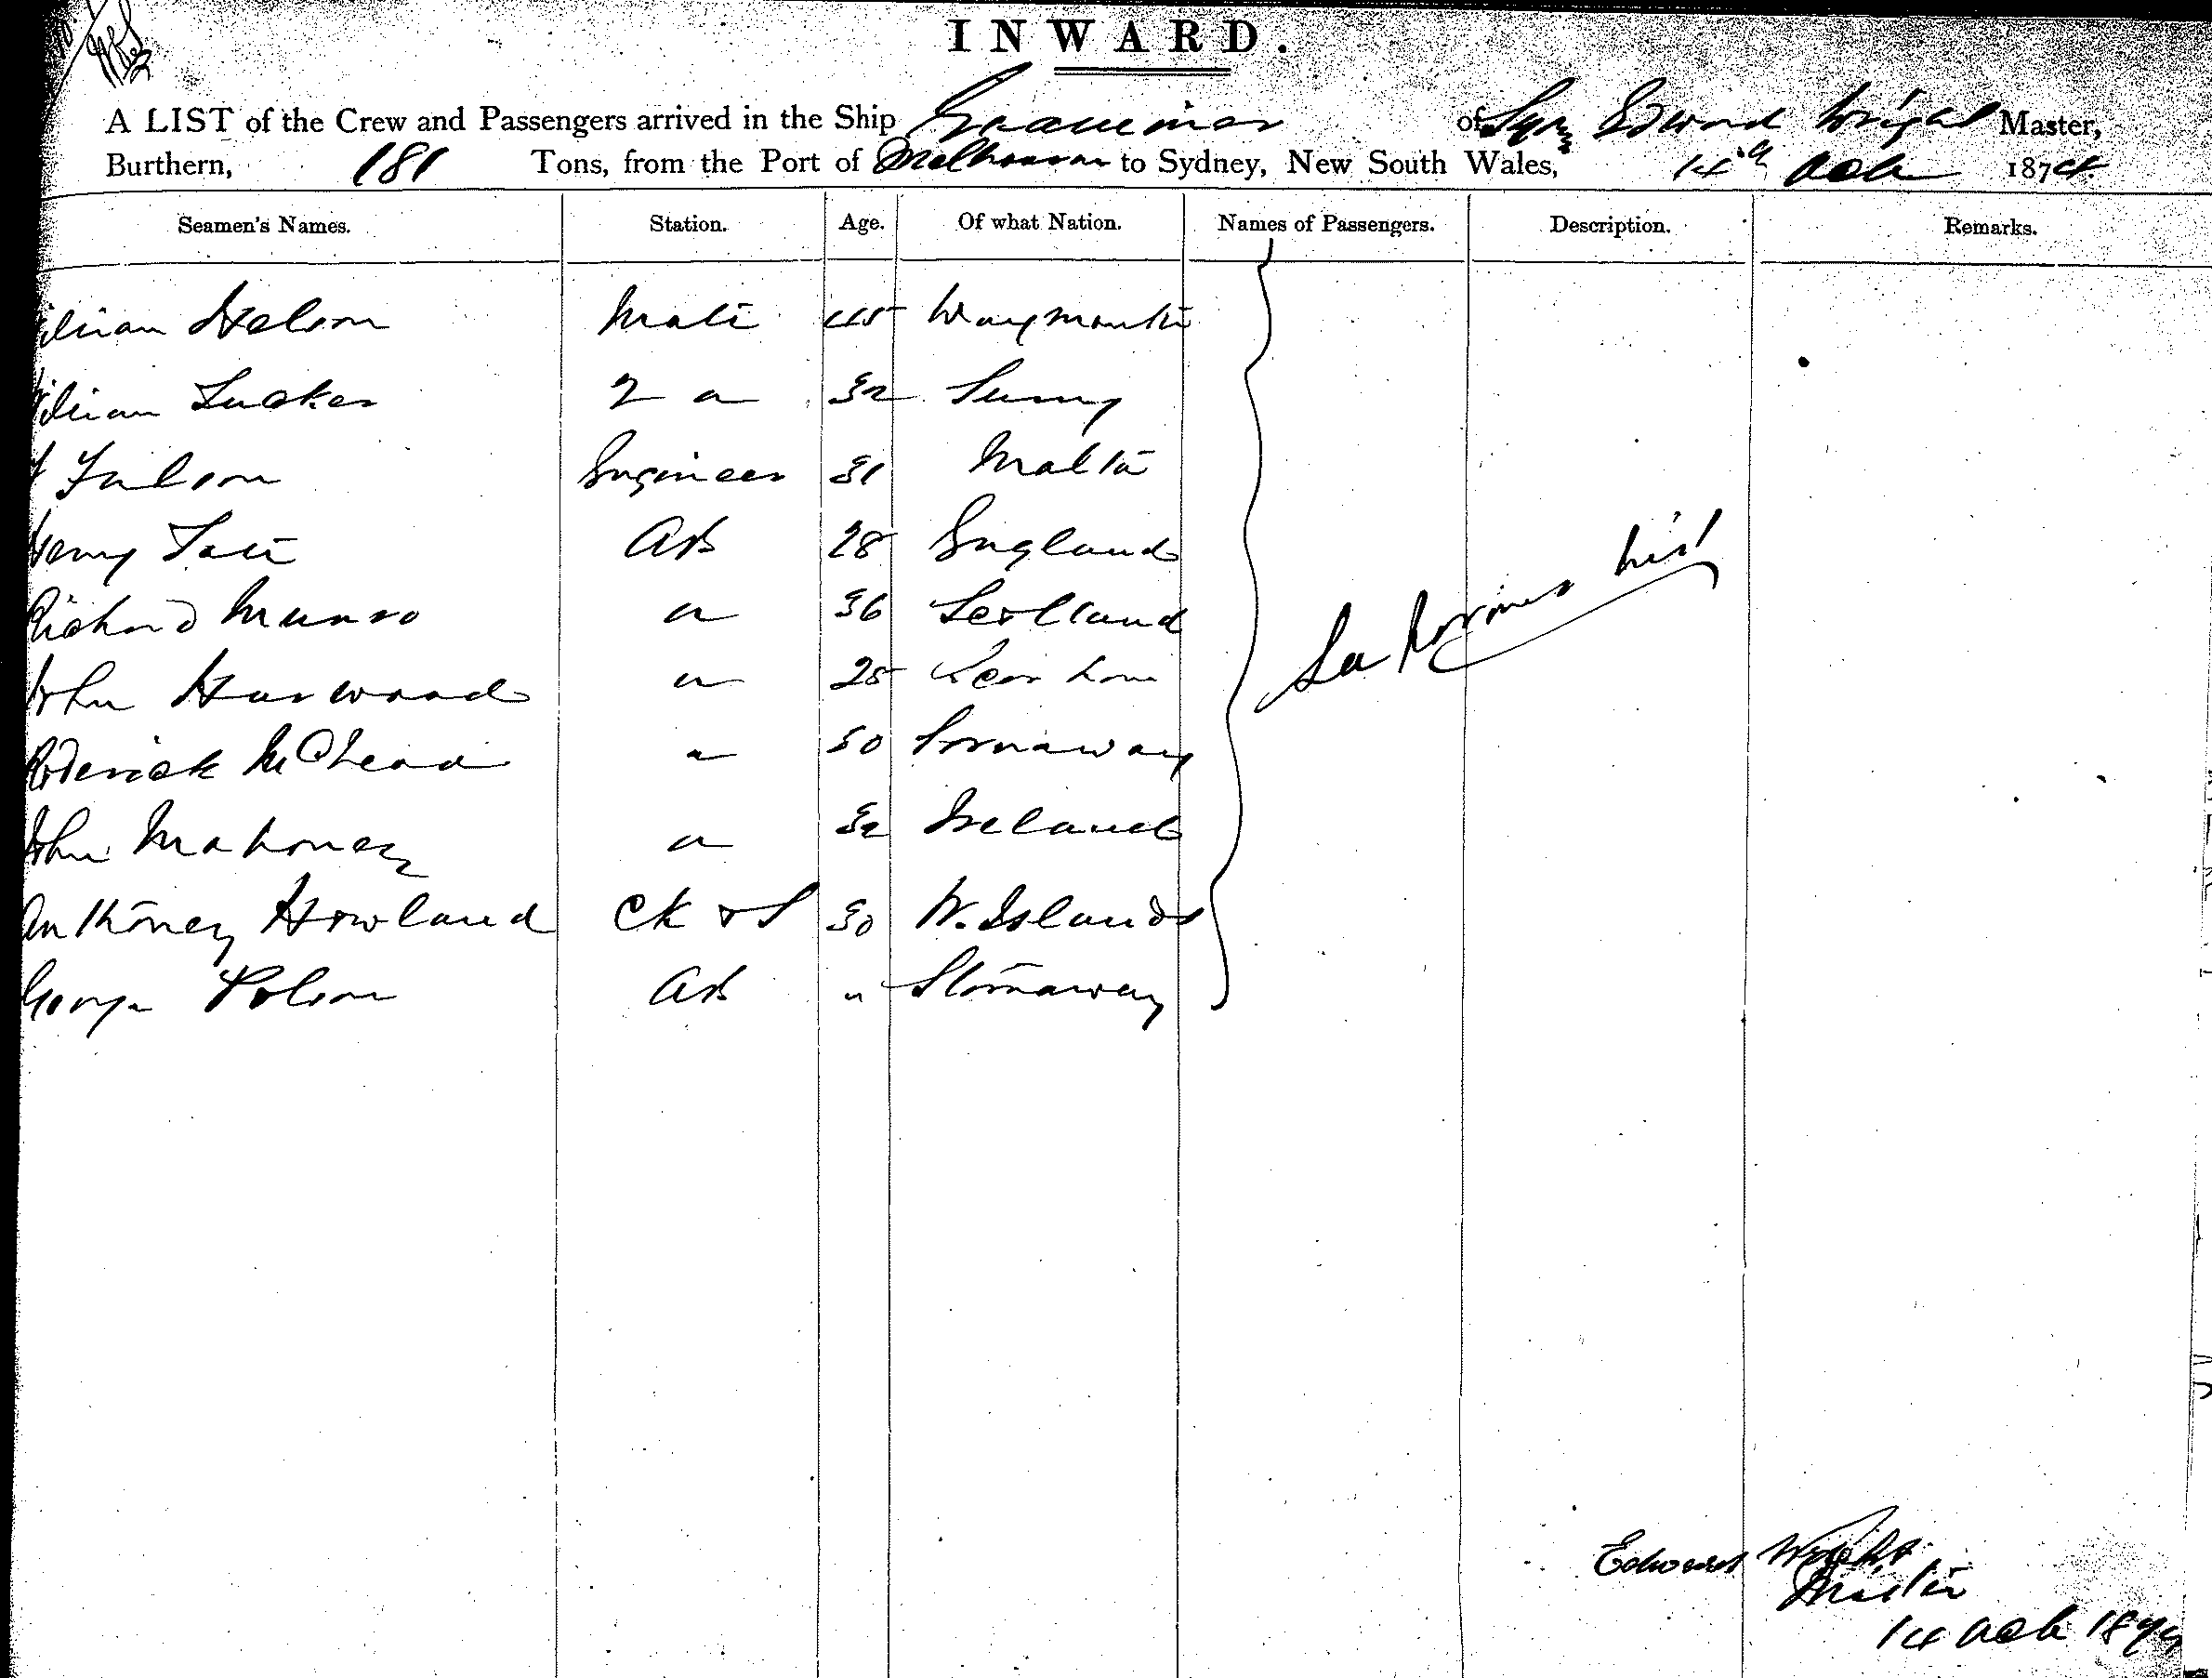 INWARD.
A LIST of the Crew and Passengers arrived in the Ship of Syny Edward Wright Master,
Burthern, 181 Tons, from the Port of Melbourne to Sydney, New South Wales, 14th Oct 1874
Seamen's Names. Station. Age. Of what Nation. Names of Passengers. Description. Remarks.
William Nelson Mate 45 Waymouth
William Tucker 2 " 32
Engineer 31 Malta
Henry Tate AB 28 England
Richard Munro " 36 Scotland
John Harwood " 25
Roderick McLeod " 50 Stornaway
John Mahoney " 32 Ireland
Anthoney Howland Ck & S 30 W. Islands
George Polson AB " Stornaway
List
Edward Wright
Master
14 Oct 1874